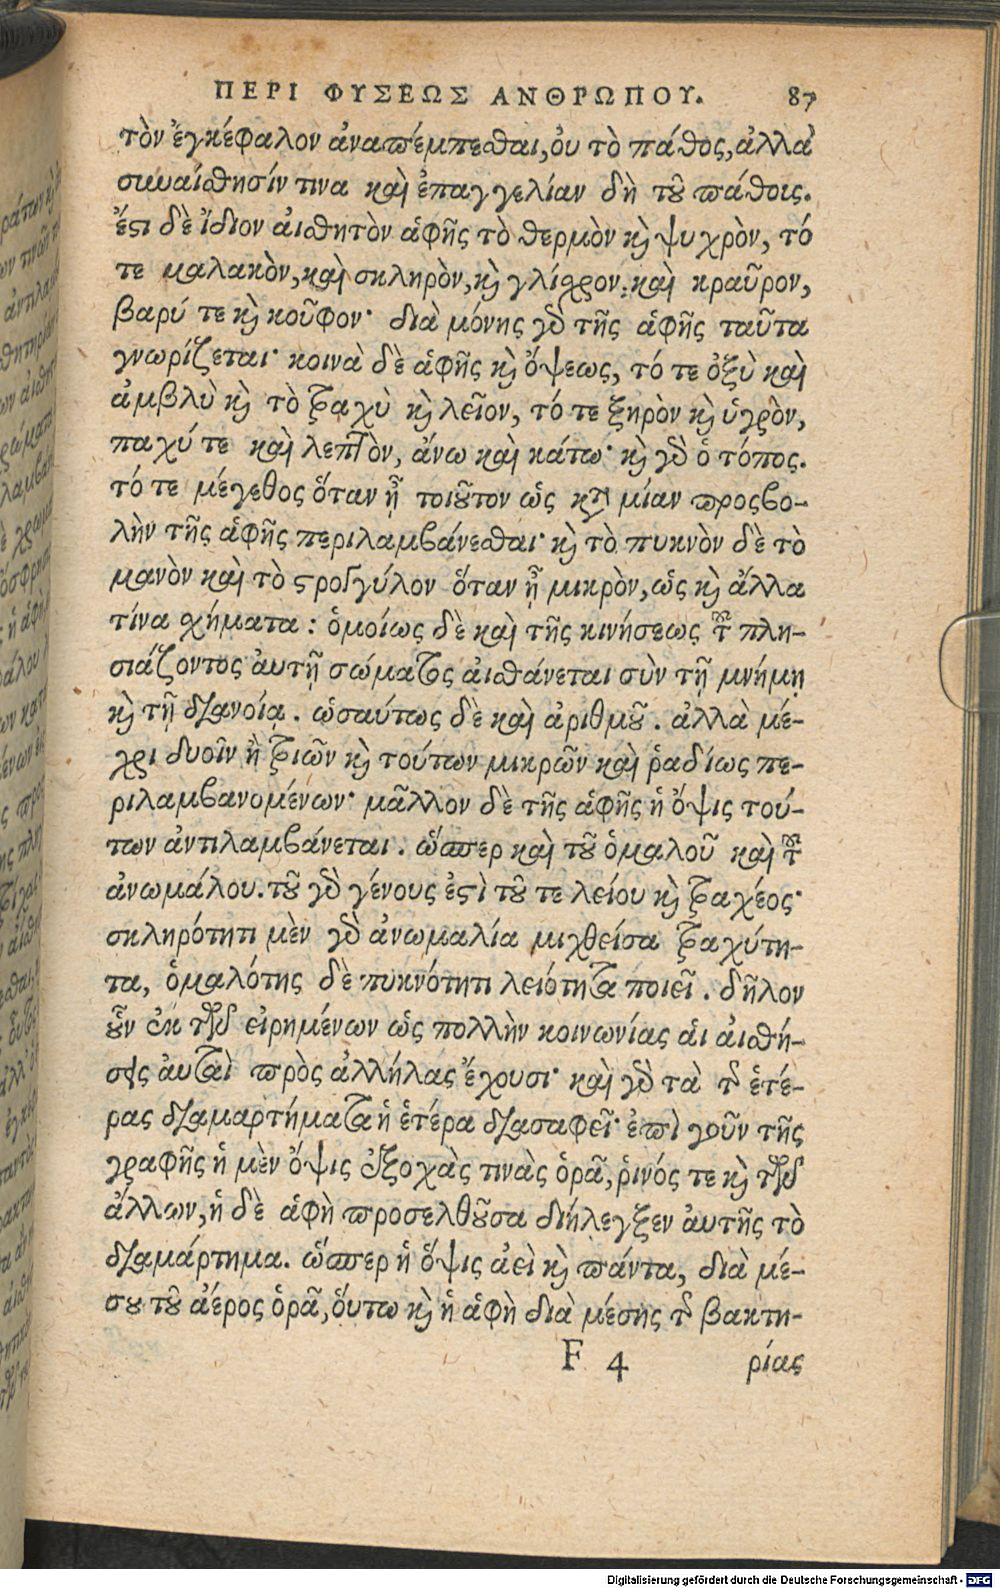 ΠΕΡΙ ΦΥΣΕΩΣ ΑΝΘΡΩΠΟΥ. 87
τὸν ἐγκέφαλον ἀναπέμπεσθαι, ὀυ τὸ πάθος, ἀλλὰ
συναίσθησίν τινα καὶ ἐπαγγελίαν δὴ τοῦ πάθοις.
ἔστι δὲ ἴδιον ἀισθητὸν ἁφῆς τὸ θερμὸν καὶ ψυχρὸν, τό
τε μαλακὸν, καὶ σκληρὸν, καὶ γλίσχρον, καὶ κραῦρον,
βαρύ τε καὶ κοῦφον· διὰ μόνης γὰρ τῆς ἁφῆς ταῦτα
γνωρίζεται· κοινὰ δὲ ἁφῆς καὶ ὄψεως, τό τε ὀξὺ καὶ
ἀμβλὺ καὶ τὸ τραχὺ καὶ λεῖον, τό τε ξηρὸν καὶ ὑγρὸν,
παχύ τε καὶ λεπτὸν, ἄνω καὶ κάτω· καὶ γὰρ ὁ τόπος.
τό τε μέγεθος ὅταν ᾖ τοιοῦτον ὡς κατὰ μίαν προσβο-
λὴν τῆς ἁφῆς περιλαμβάνεσθαι· καὶ τὸ πυκνὸν δὲ τὸ
μανὸν καὶ τὸ στρογγύλον ὅταν ᾖ μικρὸν, ὡς καὶ ἄλλα
τίνα σχήματα : ὁμοίως δὲ καὶ τῆς κινήσεως τοῦ πλη-
σιάζοντος ἀυτῇ σώματος ἀισθάνεται σὺν τῇ μνήμῃ
καὶ τῇ διανοίᾳ. ὡσαύτως δὲ καὶ ἀριθμοῦ. ἀλλὰ μέ-
χρι δυοῖν ἢ τριῶν καὶ τούτων μικρῶν καὶ ῥαδίως πε-
ριλαμβανομένων· μᾶλλον δὲ τῆς ἁφῆς ἡ ὄψις τού-
των ἀντιλαμβάνεται. ὥσπερ καὶ τοῦ ὁμαλοῦ καὶ τοῦ
ἀνωμάλου. τοῦ γὰρ γένους ἐστὶ τοῦ τε λείου καὶ τραχέος·
σκληρότητι μὲν γὰρ ἀνωμαλία μιχθείσα τραχύτη-
τα, ὁμαλότης δὲ πυκνότητι λειότητα ποιεῖ. δῆλον
οὖν ἐκ τῶν εἰρημένων ὡς πολλὴν κοινωνίας ἁι ἀισθή-
σεις ἀυταὶ πρὸς ἀλλήλας ἔχουσι· καὶ γὰρ τὰ τῆς ἑτέ-
ρας διαμαρτήματα ἡ ἑτέρα διασαφεῖ· ἐπὶ γοῦν τῆς
γραφῆς ἡ μὲν ὄψις ἐξοχὰς τινὰς ὁρᾷ, ῥινός τε καὶ τῶν
ἄλλων, ἡ δὲ ἁφὴ προσελθοῦσα διήλεγξεν ἀυτῆς τὸ
διαμάρτημα. ὥσπερ ἡ ὄψις ἀεὶ καὶ πάντα, διὰ μέ-
σου τοῦ ἀέρος ὁρᾷ, ὅυτω καὶ ἡ ἁφὴ διὰ μέσης τῆς βακτη-
F 4 ρίας
Digitalisierung gefördert durch die Deutsche Forschungsgemeinschaft - DFG